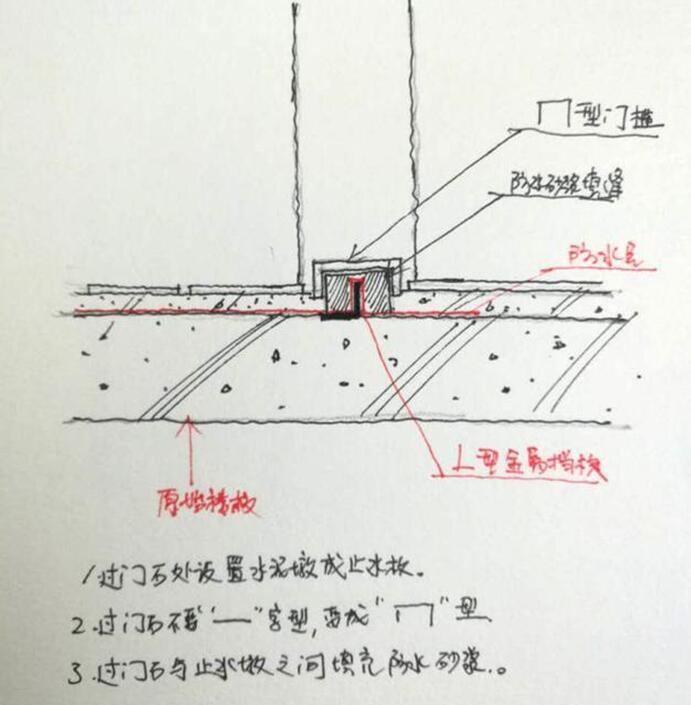 冂型门槛
防水砂浆填缝
防水层
L型金属挡板
原始楼板
1.过门石处设置水泥墩或止水板。
2.过门石不要“一”字型,要成“冂”型
3.过门石与止水墩之间填充防水砂浆。